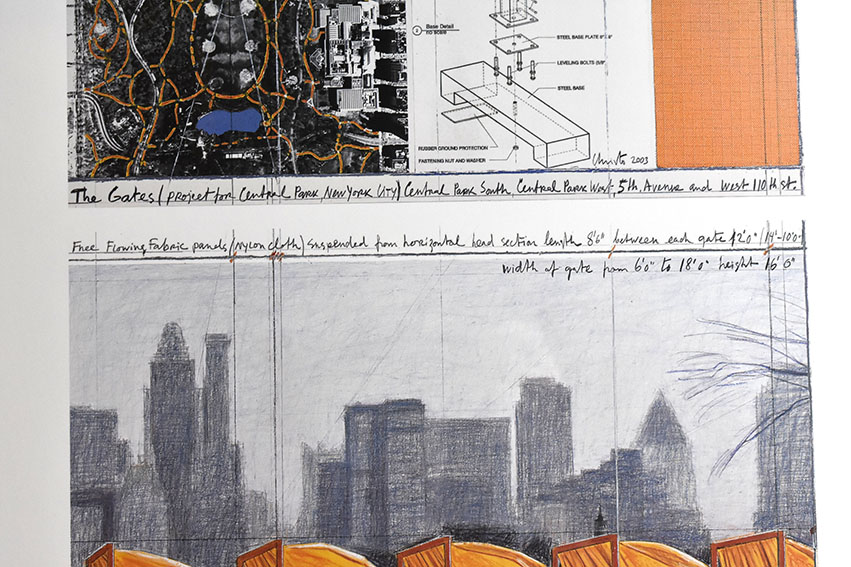 2 Base Detail
no scale
STEEL BASE PLATE 8"x 8"
LEVELING BOLTS (5/8"
STEEL BASE
RUBBER GROUND PROTECTION
FASTENING NUT AND WASHER
Christo 2003
The Gates (PROJECT FOR CENTRAL PARK, NEW YORK CITY) CENTRAL PARK SOUTH, CENTRAL PARK WEST, 5th, Avenue and West 110th st.
Free Flowing Fabric panels (NYLON CLOTH) suspended from horizontal head section length 8'6" between each gate 12'0" / 14'-10'0"
width of gate from 6'0" to 18'0" height 16'0"